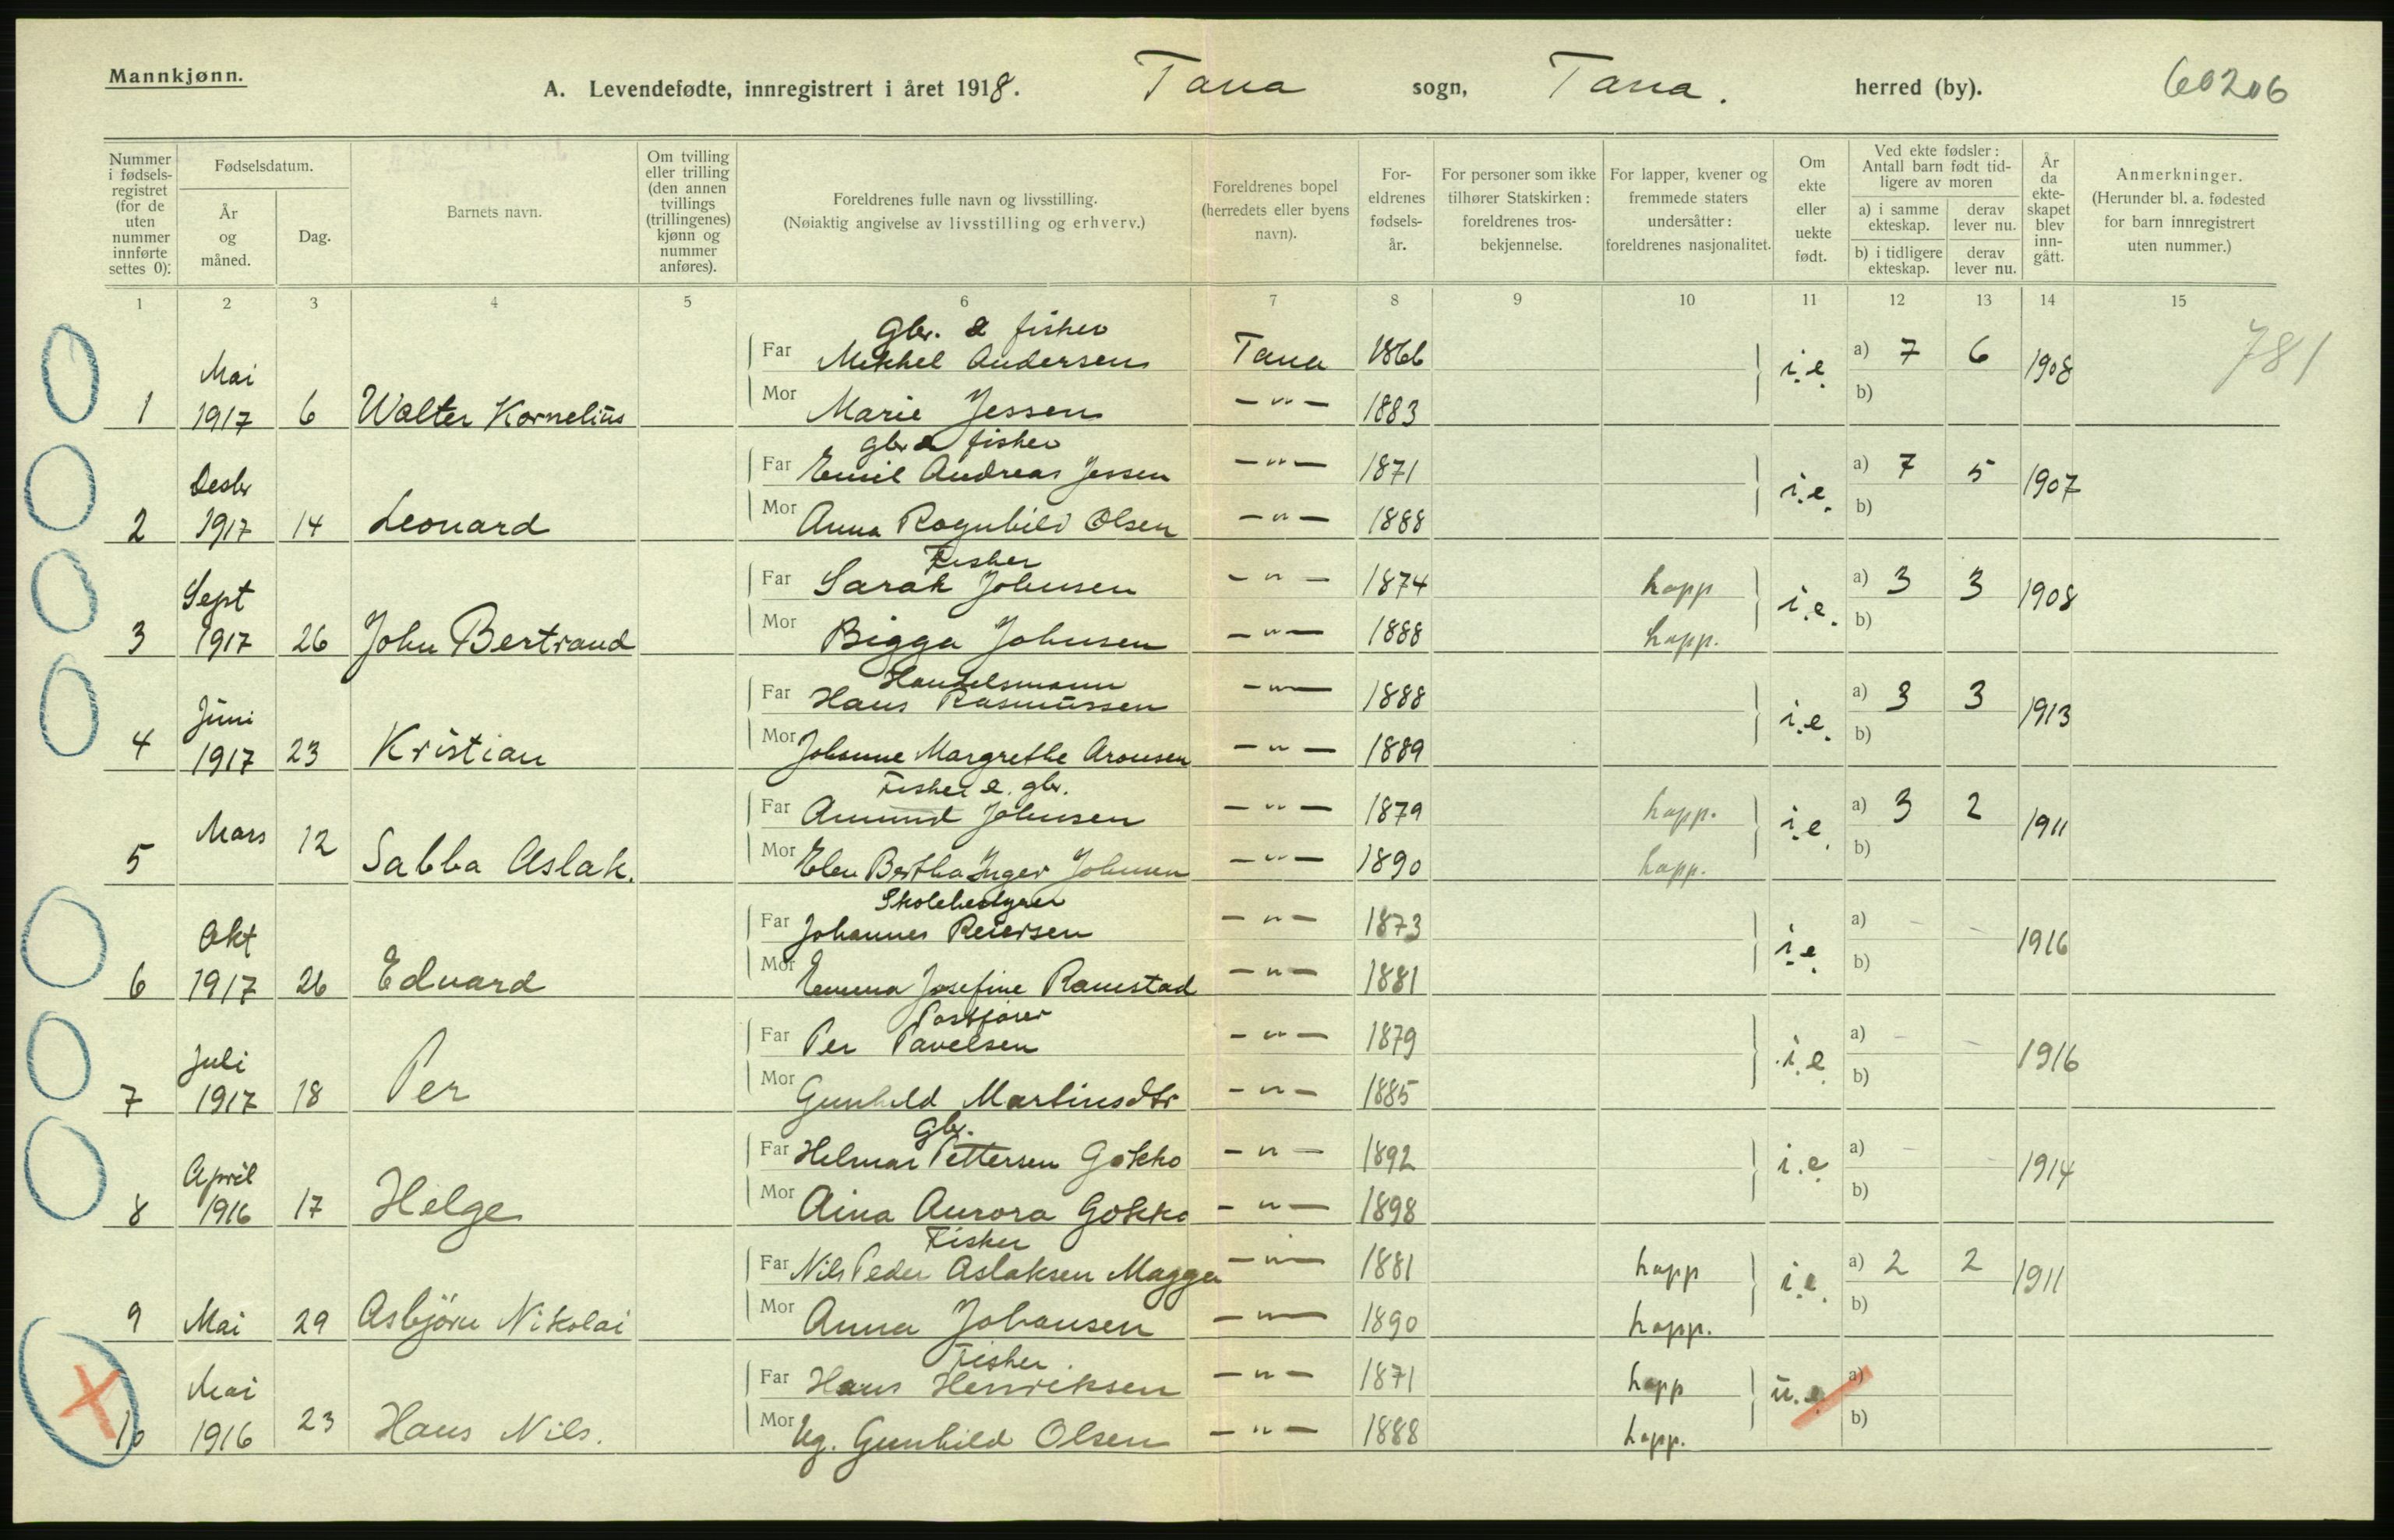 Mannkjønn.
A. Levendefødte, innregistrert i året 1918. Tana sogn, Tana. herred (by). 60206
Nummer i fødselsregistret (for de uten nummer innførte settes 0):
Fødselsdatum.
År og måned.
Dag.
Barnets navn.
Om tvilling eller trilling (den annen tvillings (trillingenes) kjønn og nummer anføres).
Foreldrenes fulle navn og livsstilling.
(Nøiaktig angivelse av livsstilling og erhverv.)
Foreldrenes bopel (herredets eller byens navn).
Foreldrenes fødselsår.
For personer som ikke tilhører Statskirken: foreldrenes trosbekjennelse.
For lapper, kvener og fremmede staters undersåtter: foreldrenes nasjonalitet.
Om ekte eller uekte født.
Ved ekte fødsler: Antall barn født tidligere av moren
a) i samme ekteskap. derav lever nu.
b) i tidligere ekteskap. derav lever nu.
År da ekteskapet blev inngått.
Anmerkninger.
(Herunder bl. a. fødested for barn innregistrert uten nummer.)
1 2 3 4 5 6 7 8 9 10 11 12 13 14 15
Gbr. & fisker
Far Mikkel Andersen Tana 1866 i.e. a) 7 6 1908 781
1 Mai 1917 6 Walter Kornelius Mor Marie Jessen — " — 1883 b)
gbr & fisker
Far Emil Andreas Jessen — " — 1871 i.e. a) 7 5 1907
2 Desbr 1917 14 Leonard Mor Anna Ragnhild Olsen — " — 1888 b)
Fisker
Far Sarak Johnsen — " — 1874 lapp i.e. a) 3 3 1908
3 Sept 1917 26 John Bertrand Mor Bigga Johnsen — " — 1888 lapp. b)
Handelsmann
Far Hans Rasmussen — " — 1888 i.e. a) 3 3 1913
4 Juni 1917 23 Kristian Mor Johanne Margrethe Aronsen — " — 1889 b)
Fisker & gbr.
Far Amund Johnsen — " — 1879 lapp. i.e. a) 3 2 1911
5 Mars 12 Sabba Aslak. Mor Elen Bertha Inger Johnsen — " — 1890 lapp. b)
Skolebestyrer
Far Johannes Reiersen — " — 1873 i.e. a) - - 1916
6 Okt 1917 26 Edvard Mor Emma Josefine Ramstad — " — 1881 b)
Postfører
Far Per Pavelsen — " — 1879 i.e. a) - - 1916
7 Juli 1917 18 Per Mor Gunhild Martinsdtr — " — 1885 b)
Gbr.
Far Helmar Pettersen Gokko — " — 1892 i.e. a) - - 1914
8 April 1916 17 Helge Mor Aina Aurora Gokko — " — 1898 b)
Fisker
Far Nils Peder Aslaksen Magga — " — 1881 lapp i.e. a) 2 2 1911
9 Mai 29 Asbjörn Nikolai Mor Anna Johansen — " — 1890 lapp. b)
Fisker
Far Hans Henriksen — " — 1871 lapp u.e. a)
10 Mai 1916 23 Hans Nils. Mor Ug. Gunhild Olsen — " — 1888 lapp. b)